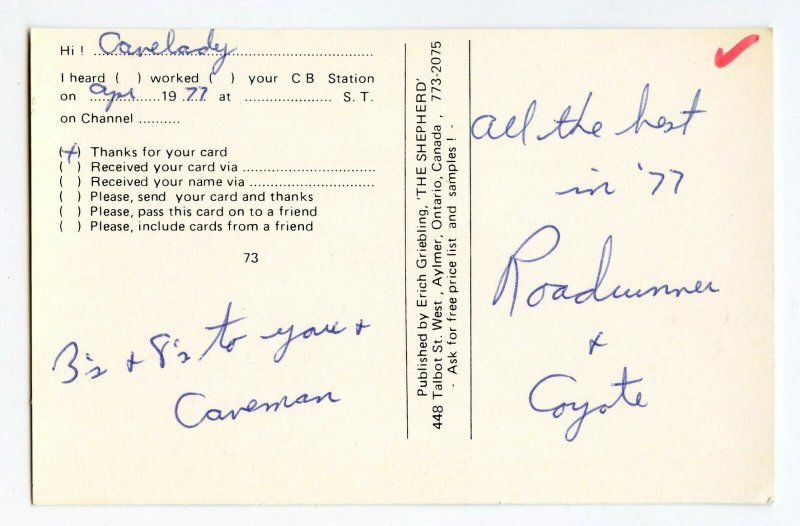 Hi ! Cavelady
I heard ( ) worked ( ) your C B Station
on Apr 1977 at .................... S. T.
on Channel ..........
(+) Thanks for your card
( ) Received your card via ..............................
( ) Received your name via ..............................
( ) Please, send your card and thanks
( ) Please, pass this card on to a friend
( ) Please, include cards from a friend
73
3's + 8's to you +
Caveman
Published by Erich Griebling, 'THE SHEPHERD'
448 Talbot St. West , Aylmer, Ontario, Canada , 773-2075
- Ask for free price list and samples ! -
all the best
in '77
Roadrunner
+
Coyote